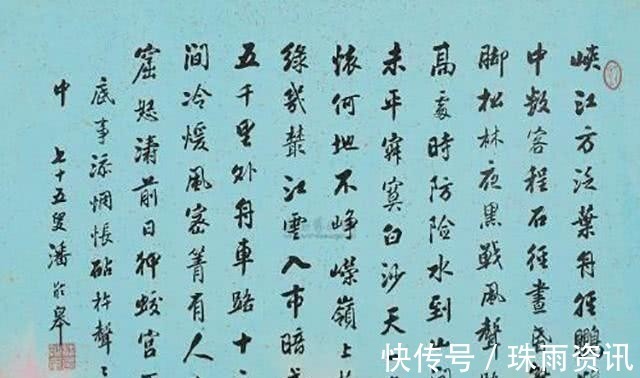 峡江方泛葉舟輕鵬
中数客程石徑晝昏
脚松林夜黑戰風聲
高處時防險水到
未平寂寞白沙天
懐何地不崢嶸嶺上
綠幾叢江雲入市暗
五千里外舟車路十二
間冷煖風客箐有人
窟怒濤前日狎蛟宮
底事添惆悵砧杵聲之
中 七十五叟潘齡皋
快传号 / 珠雨资讯